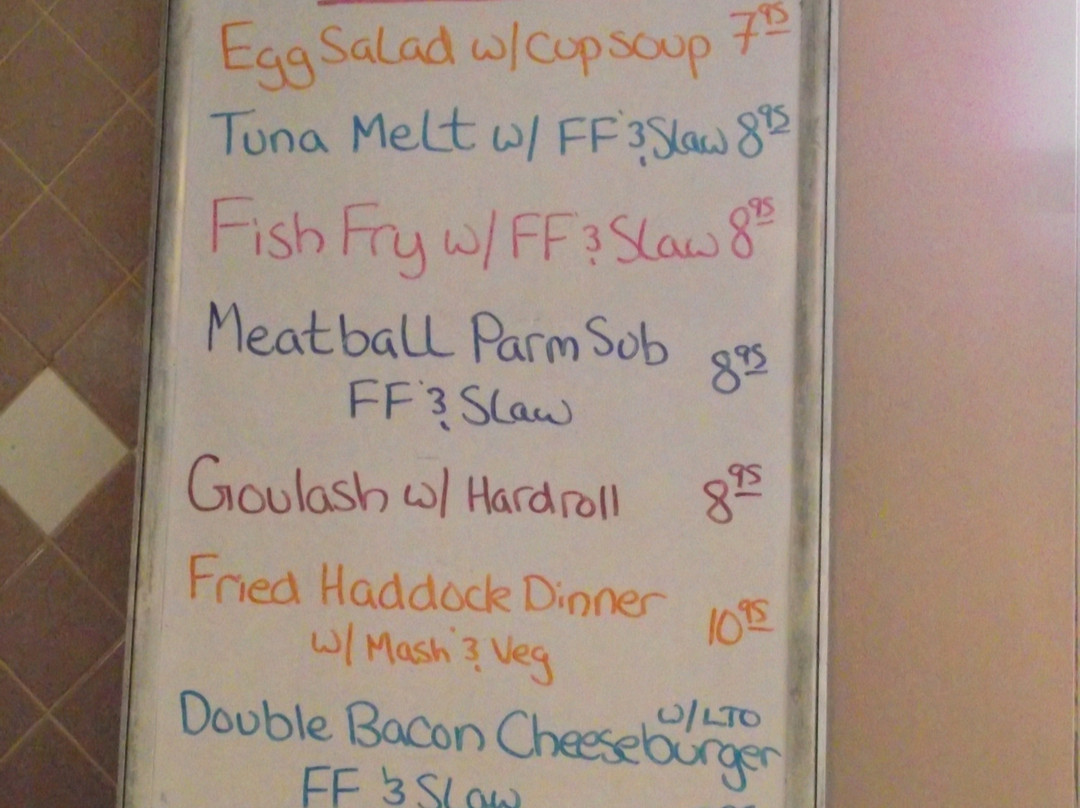 Egg Salad w/ cup soup 7.95
Tuna Melt w/ FF & Slaw 8.95
Fish Fry w/ FF & Slaw 8.95
Meatball Parm Sub 8.95
FF & Slaw
Goulash w/ Hardroll 8.95
Fried Haddock Dinner 10.95
w/ Mash & Veg
Double Bacon Cheeseburger w/ LTO
FF & Slaw